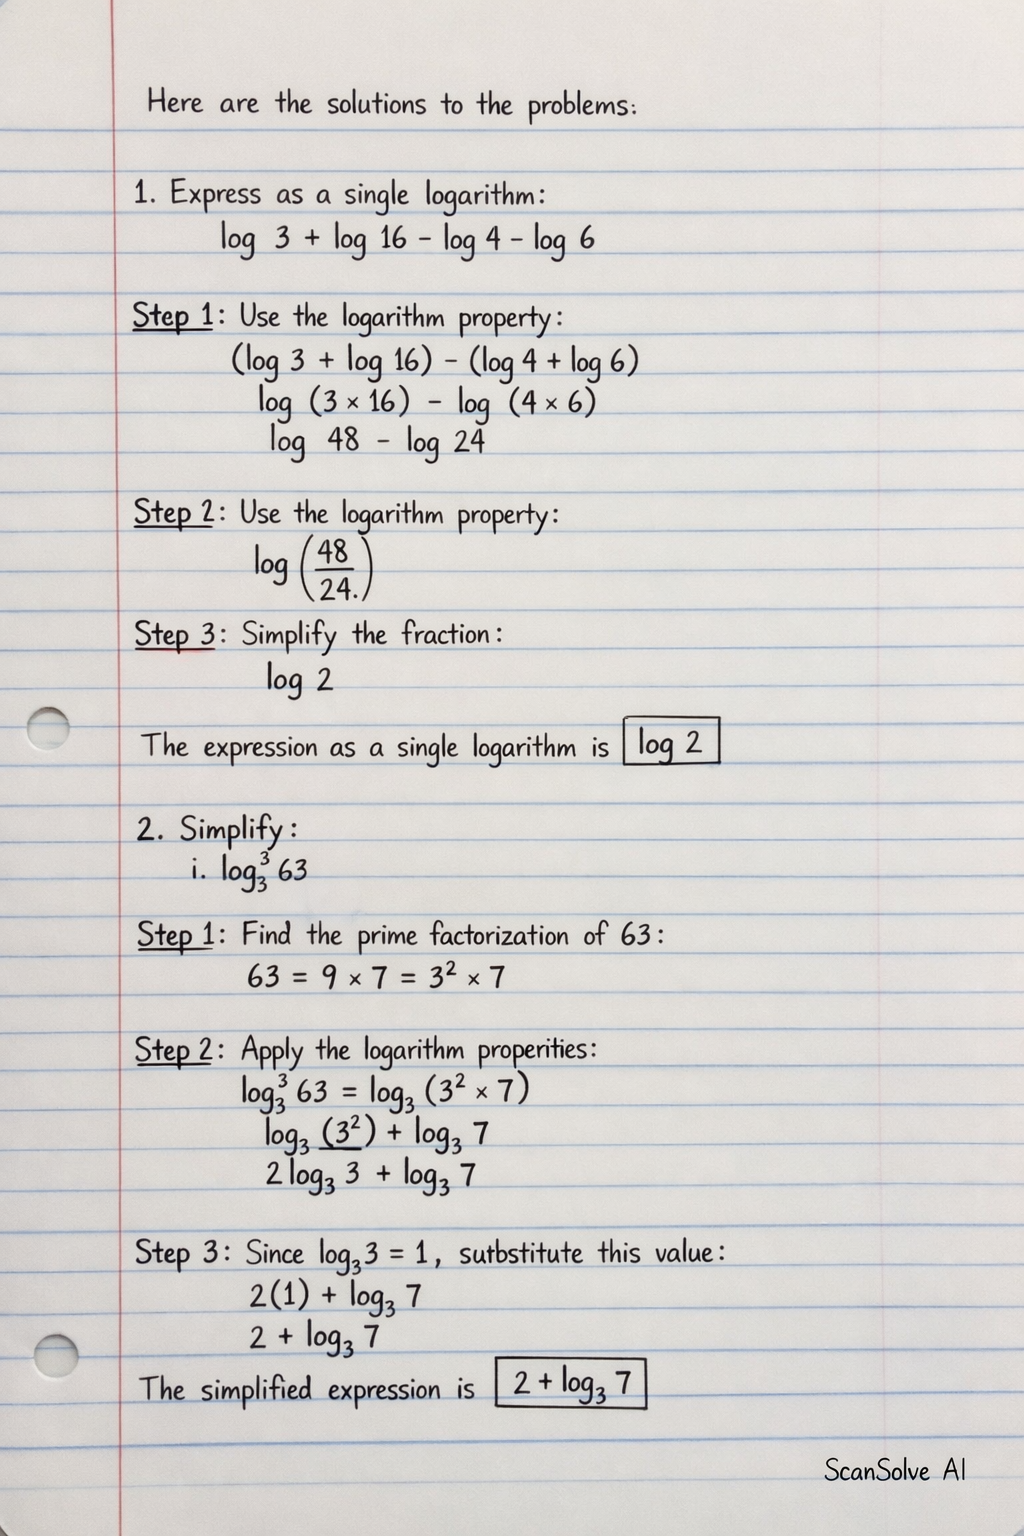 Here are the solutions to the problems:
1. Express as a single logarithm:
log 3 + log 16 - log 4 - log 6
Step 1: Use the logarithm property:
(log 3 + log 16) - (log 4 + log 6)
log (3 × 16) - log (4 × 6)
log 48 - log 24
Step 2: Use the logarithm property:
log (48/24.)
Step 3: Simplify the fraction:
log 2
The expression as a single logarithm is log 2
2. Simplify:
i. log₃³ 63
Step 1: Find the prime factorization of 63:
63 = 9 × 7 = 3² × 7
Step 2: Apply the logarithm properities:
log₃³ 63 = log₃ (3² × 7)
log₃ (3²) + log₃ 7
2 log₃ 3 + log₃ 7
Step 3: Since log₃3 = 1, sutbstitute this value:
2(1) + log₃ 7
2 + log₃ 7
The simplified expression is 2 + log₃ 7
ScanSolve AI